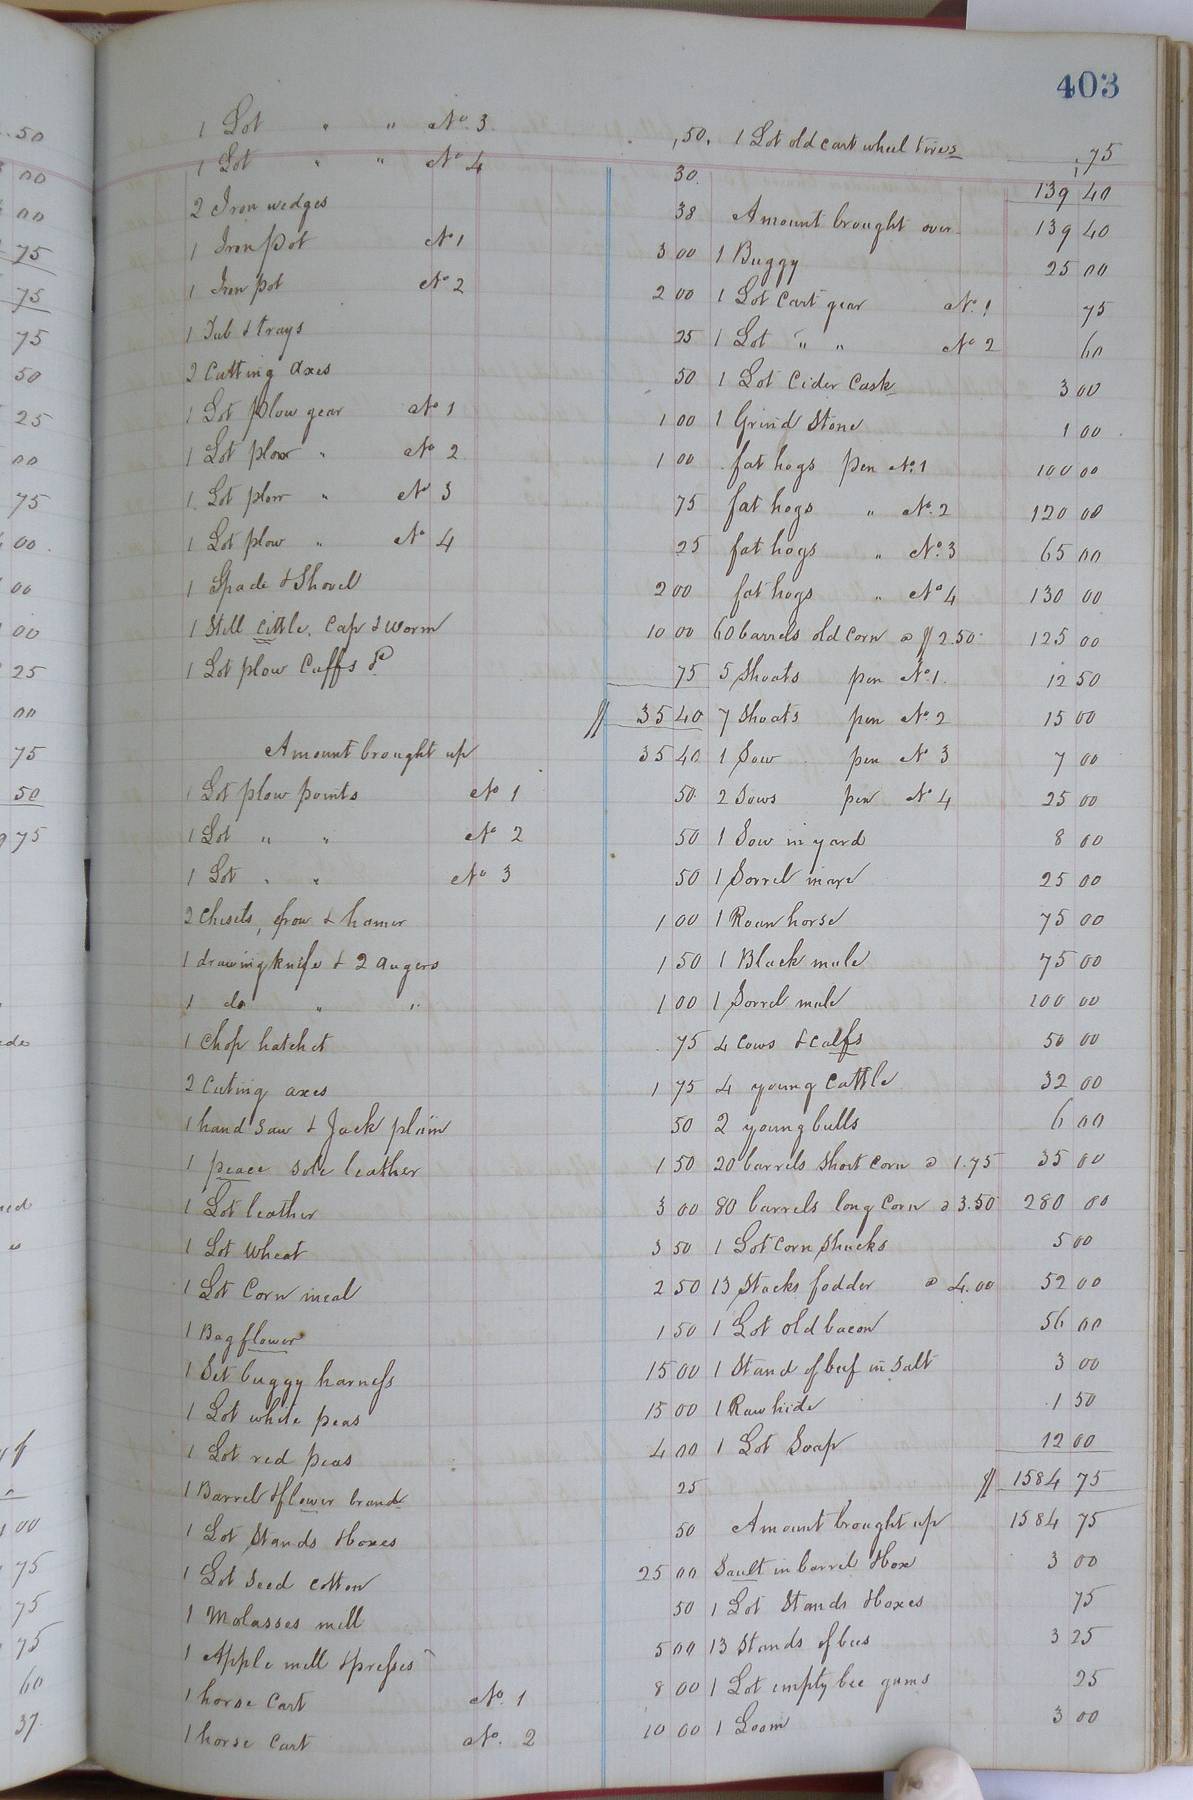 403
1 Lot " " No. 3. ,50.
1 Lot " " No 4 30.
2 Iron wedges 38
1 Iron Pot No 1 3 00
1 Iron pot No 2 2 00
1 Tub & trays 25
2 Cutting axes 50
1 Lot Plow gear No 1 1 00
1 Lot plow " No 2 1 00
1 Lot plow " No 3 75
1 Lot plow " No 4 25
1 Spade & Shovel 2 00
1 Still cittle, Cap & Worm 10 00
1 Lot plow Cuffs &c 75
$ 35 40
Amount brought up 35 40
1 Lot plow points No 1 50
1 Lot " " No 2 50
1 Lot " " No 3 50
2 Chisels, frow & hamer 1 00
1 drawing knife & 2 augers 1 50
1 do " " 1 00
1 Chop hatchet 75
2 Cuting axes 1 75
1 hand saw & Jack plain 50
1 peace sole leather 1 50
1 Lot leather 3 00
1 Lot Wheat 3 50
1 Lot Corn meal 2 50
1 Bag flower 1 50
1 Set buggy harness 15 00
1 Lot white peas 15 00
1 Lot red peas 4 00
1 Barrel & flower brand 25
1 Lot Stands & boxes 50
1 Lot Seed cotton 25 00
1 Molasses mill 50
1 Apple mill & presses 5 00
1 horse Cart No. 1 8 00
1 horse Cart No. 2 10 00
1 Lot old cart wheel tires 75
139 40
Amount brought over 139 40
1 Buggy 25 00
1 Lot Cart gear No. 1 75
1 Lot " " No 2 60
1 Lot Cider Cask 3 00
1 Grind Stone 1 00
fat hogs pen No. 1 100 00
fat hogs " No. 2 120 00
fat hogs " No. 3 65 00
fat hogs " No 4 130 00
60 barrels old corn @ $2.50 125 00
5 Shoats pen No. 1. 12 50
7 Shoats pen No. 2 15 00
1 Sow pen No 3 7 00
2 Sows pen No 4 25 00
1 Sow in yard 8 00
1 Sorrel mare 25 00
1 Roan horse 75 00
1 Black mule 75 00
1 Sorrel mule 100 00
4 Cows & calfs 50 00
4 young Cattle 32 00
2 young bulls 6 00
20 barrels Short Corn @ 1.75 35 00
80 barrels long Corn @ 3.50 280 00
1 Lot Corn Shucks 5 00
13 Stacks fodder @ 4.00 52 00
1 Lot old bacon 56 00
1 Stand of beef in Salt 3 00
1 Raw hide 1 50
1 Lot Soap 12 00
$ 1584 75
Amount brought up 1584 75
Sault in barrel & box 3 00
1 Lot Stands & boxes 75
13 Stands of bees 3 25
1 Lot empty bee gums 25
1 Loom 3 00